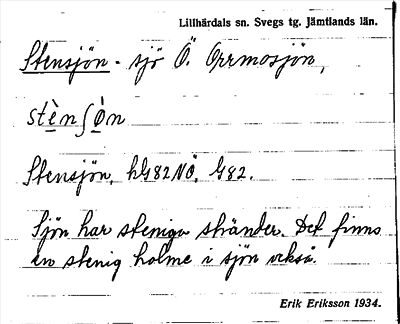 Lillhärdals sn. Svegs tg. Jämtlands län.
Stensjön - sjö Ö. Orrmosjön,
stènʃòn
Stensjön, hG82NÖ, G82.
Sjön har steniga stränder. Det finns
en stenig holme i sjön också.
Erik Eriksson 1934.